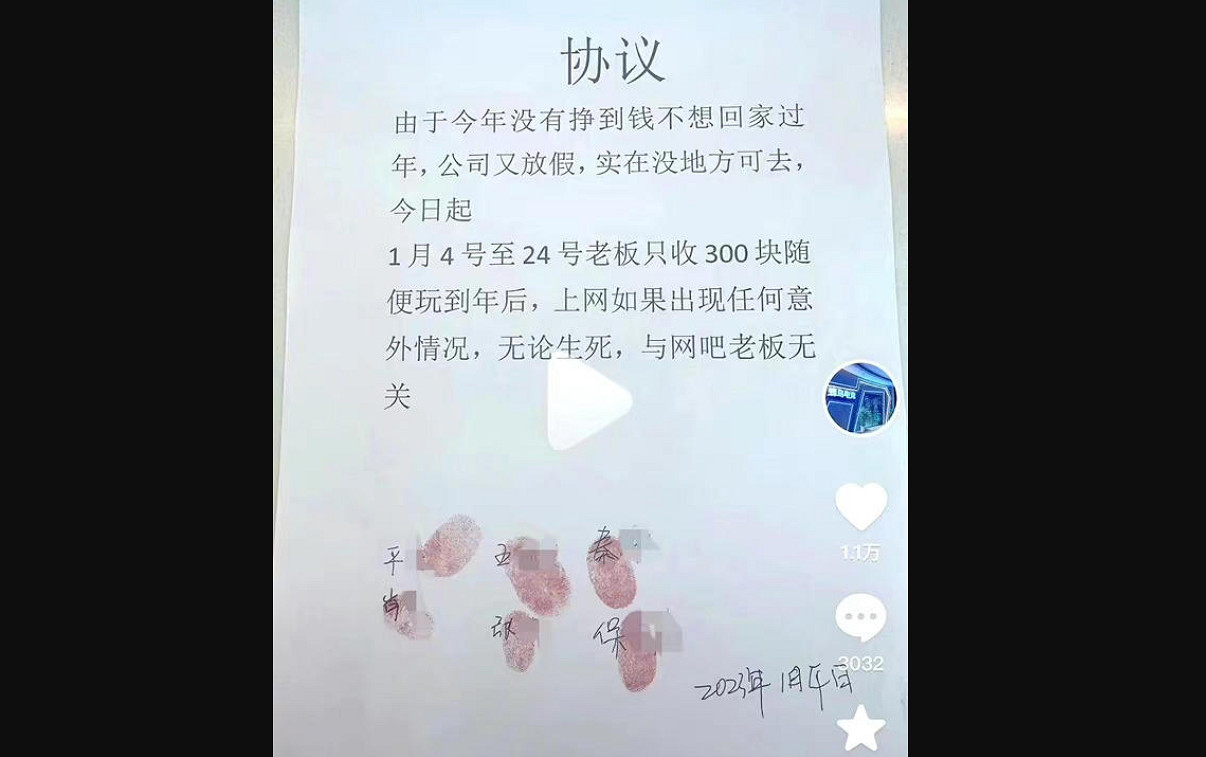 协议
由于今年没有挣到钱不想回家过
年，公司又放假，实在没地方可去，
今日起
1月4号至24号老板只收300块随
便玩到年后，上网如果出现任何意
外情况，无论生死，与网吧老板无
关
平 秦
肖 张 保
2023年1月4日
1.1万
3032